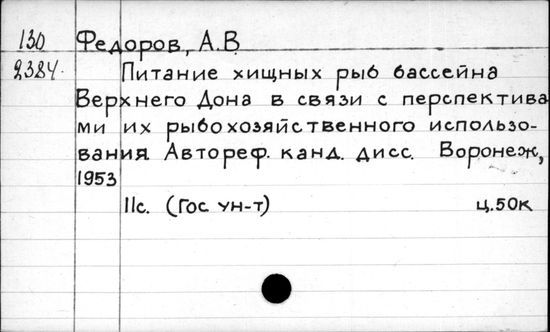 130 Федоров, А.В
2384. Питание хищных рыб бассейна
Верхнего Дона в связи с перспектива
ми их рыбохозяйственного использо-
вания. Автореф. канд. дисс. Воронеж,
1953
11с. (Гос ун-т) ц.50к